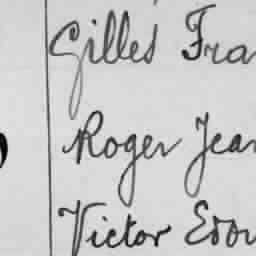 Gilles Fra
Roger Jean
Victor Edou